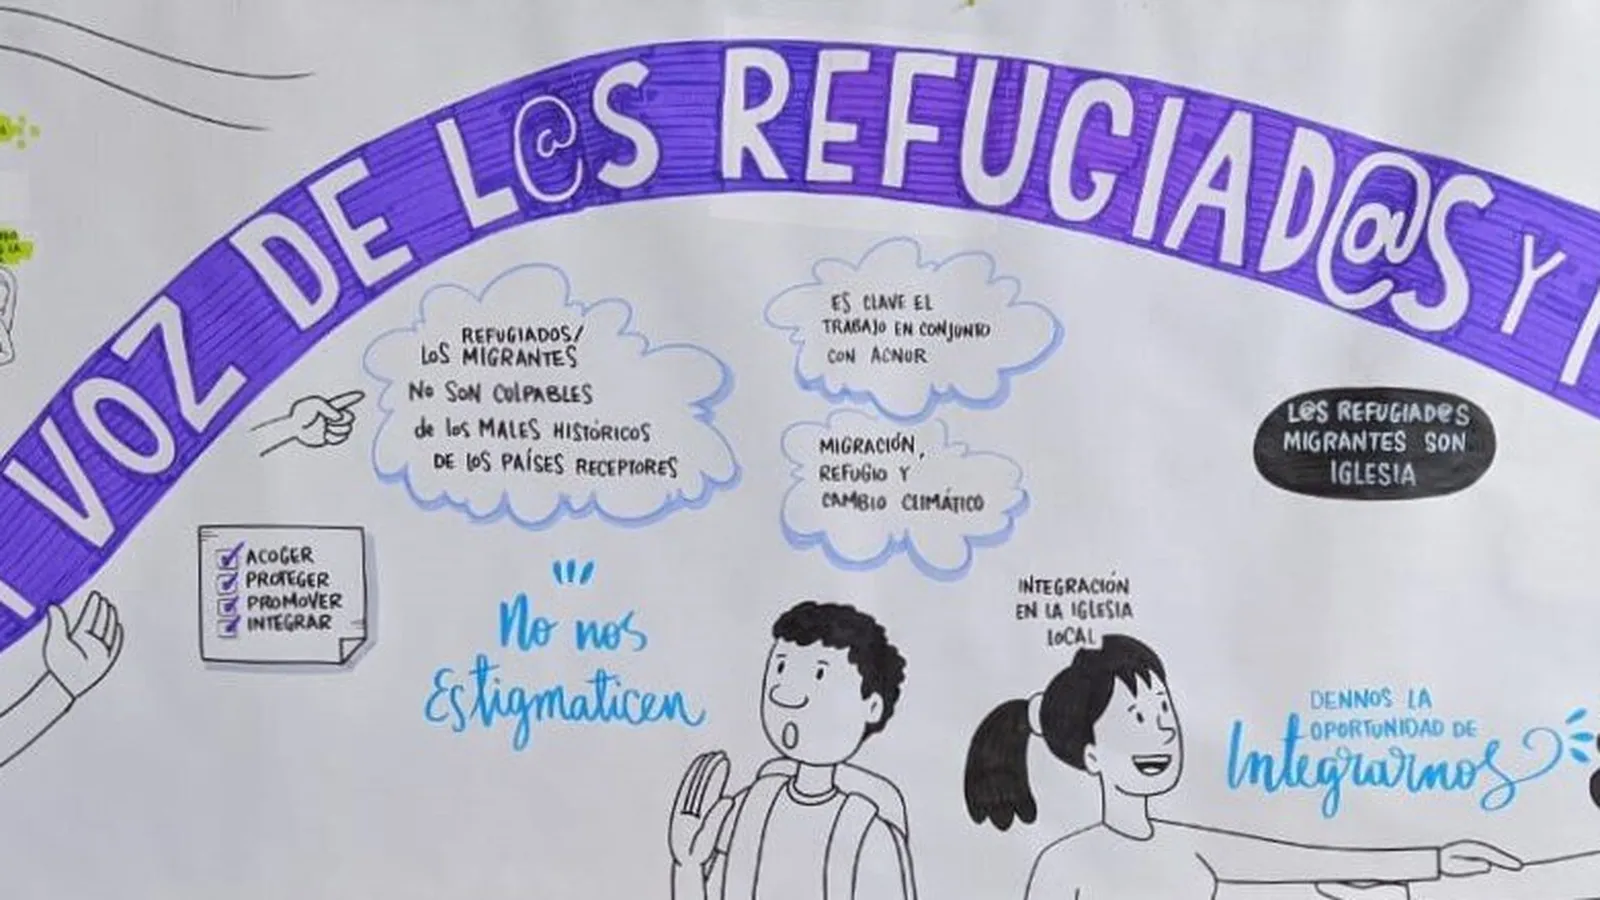 VOZ DE L@S REFUGIAD@S Y
REFUGIADOS/
LOS MIGRANTES
No SON CULPABLES
de los MALES HISTÓRICOS
DE LOS PAÍSES RECEPTORES
ES CLAVE EL
TRABAJO EN CONJUNTO
CON ACNUR
MIGRACIÓN,
REFUGIO Y
CAMBIO CLIMÁTICO
L@S REFUGIAD@S
MIGRANTES SON
IGLESIA
ACOGER
PROTEGER
PROMOVER
INTEGRAR
No nos
Estigmaticen
INTEGRACIÓN
EN LA IGLESIA
LOCAL
DENNOS LA
OPORTUNIDAD DE
Integrarnos